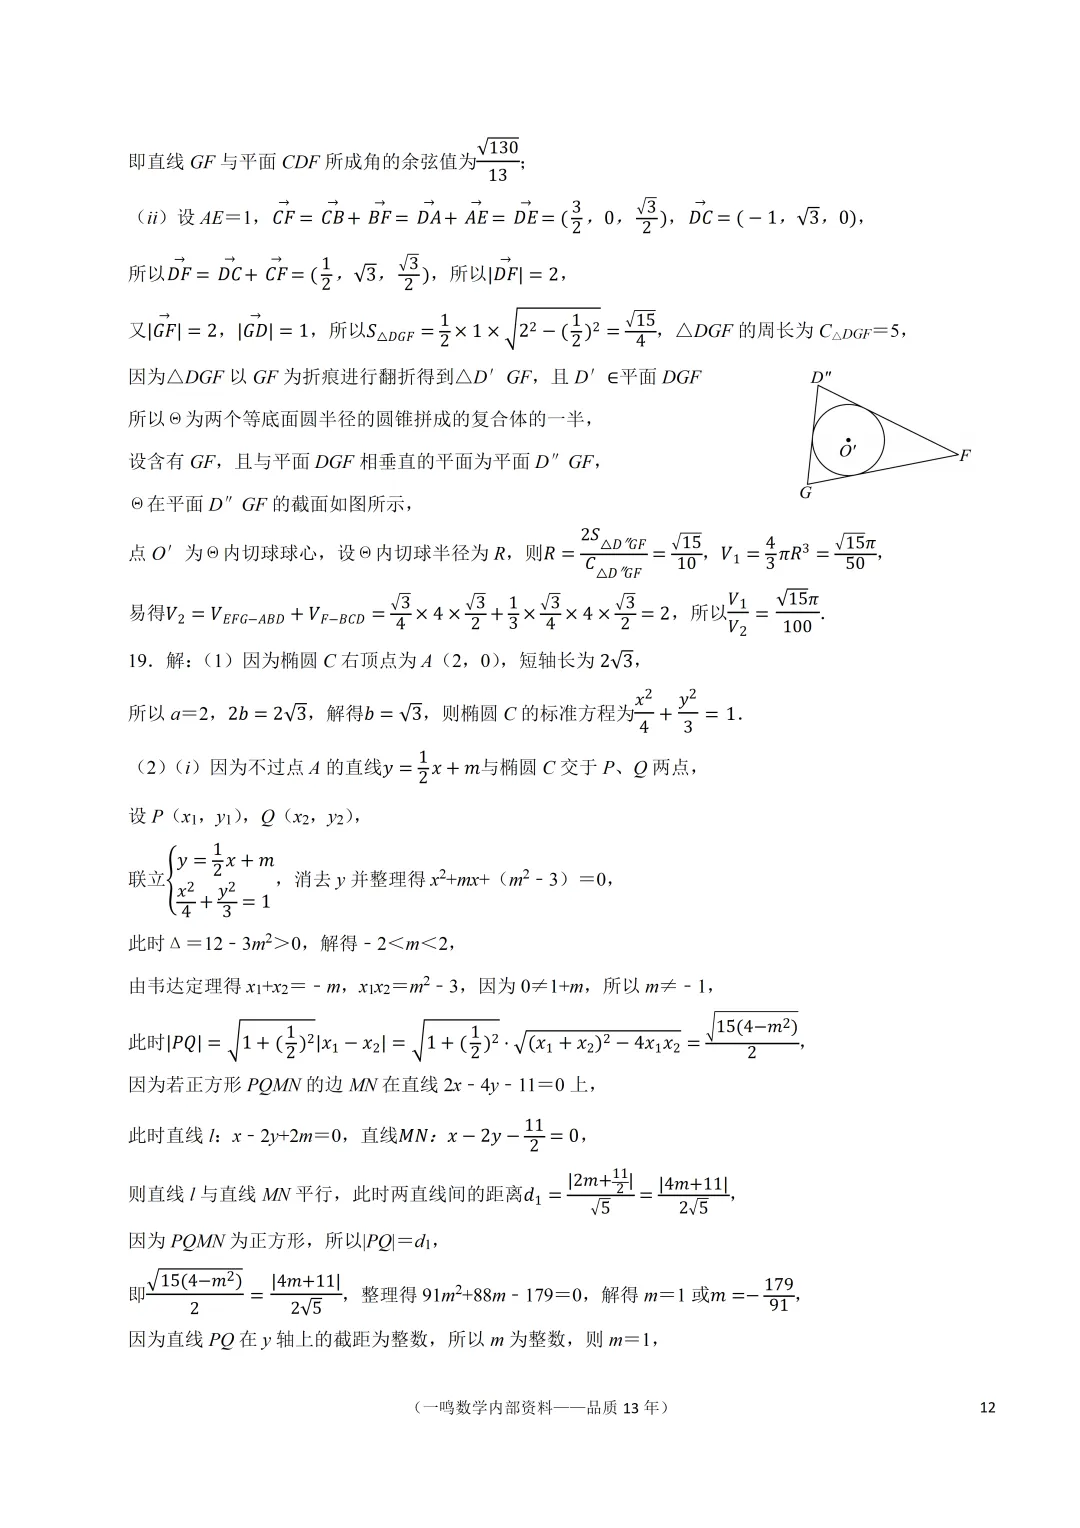 即直线 GF 与平面 CDF 所成角的余弦值为$\frac{\sqrt{130}}{13}$；
（ii）设 AE＝1，$\overrightarrow{CF}=\overrightarrow{CB}+\overrightarrow{BF}=\overrightarrow{DA}+\overrightarrow{AE}=\overrightarrow{DE}=(\frac{3}{2}，0，\frac{\sqrt{3}}{2})$，$\overrightarrow{DC}=(-1，\sqrt{3}，0)$，
所以$\overrightarrow{DF}=\overrightarrow{DC}+\overrightarrow{CF}=(\frac{1}{2}，\sqrt{3}，\frac{\sqrt{3}}{2})$，所以$|\overrightarrow{DF}|=2$，
又$|\overrightarrow{GF}|=2$，$|\overrightarrow{GD}|=1$，所以$S_{△DGF}=\frac{1}{2}×1×\sqrt{2^2-(\frac{1}{2})^2}=\frac{\sqrt{15}}{4}$，△DGF 的周长为 $C_{△DGF}$＝5，
因为△DGF 以 GF 为折痕进行翻折得到△D′GF，且 D′∈平面 DGF
所以Θ为两个等底面圆半径的圆锥拼成的复合体的一半，
设含有 GF，且与平面 DGF 相垂直的平面为平面 D″GF，
Θ在平面 D″GF 的截面如图所示，
D″
O′
F
G
点 O′为Θ内切球球心，设Θ内切球半径为 R，则$R=\frac{2S_{△D″GF}}{C_{△D″GF}}=\frac{\sqrt{15}}{10}$，$V_1=\frac{4}{3}πR^3=\frac{\sqrt{15}π}{50}$，
易得$V_2=V_{EFG-ABD}+V_{F-BCD}=\frac{\sqrt{3}}{4}×4×\frac{\sqrt{3}}{2}+\frac{1}{3}×\frac{\sqrt{3}}{4}×4×\frac{\sqrt{3}}{2}=2$，所以$\frac{V_1}{V_2}=\frac{\sqrt{15}π}{100}$．
19．解：（1）因为椭圆 C 右顶点为 A（2，0），短轴长为 $2\sqrt{3}$，
所以 a＝2，$2b=2\sqrt{3}$，解得$b=\sqrt{3}$，则椭圆 C 的标准方程为$\frac{x^2}{4}+\frac{y^2}{3}=1$．
（2）（i）因为不过点 A 的直线$y=\frac{1}{2}x+m$与椭圆 C 交于 P、Q 两点，
设 P（x₁，y₁），Q（x₂，y₂），
联立$\begin{cases}y=\frac{1}{2}x+m\\\frac{x^2}{4}+\frac{y^2}{3}=1\end{cases}$，消去 y 并整理得 x²+mx+（m²﹣3）＝0，
此时Δ＝12﹣3m²＞0，解得﹣2＜m＜2，
由韦达定理得 x₁+x₂＝﹣m，x₁x₂＝m²﹣3，因为 0≠1+m，所以 m≠﹣1，
此时$|PQ|=\sqrt{1+(\frac{1}{2})^2}|x_1-x_2|=\sqrt{1+(\frac{1}{2})^2}·\sqrt{(x_1+x_2)^2-4x_1x_2}=\frac{\sqrt{15(4-m^2)}}{2}$，
因为若正方形 PQMN 的边 MN 在直线 2x﹣4y﹣11＝0 上，
此时直线 l：x﹣2y+2m＝0，直线$MN：x-2y-\frac{11}{2}=0$，
则直线 l 与直线 MN 平行，此时两直线间的距离$d_1=\frac{|2m+\frac{11}{2}|}{\sqrt{5}}=\frac{|4m+11|}{2\sqrt{5}}$，
因为 PQMN 为正方形，所以|PQ|＝d₁，
即$\frac{\sqrt{15(4-m^2)}}{2}=\frac{|4m+11|}{2\sqrt{5}}$，整理得 91m²+88m﹣179＝0，解得 m＝1 或$m=-\frac{179}{91}$，
因为直线 PQ 在 y 轴上的截距为整数，所以 m 为整数，则 m＝1，
（一鸣数学内部资料——品质 13 年）
12